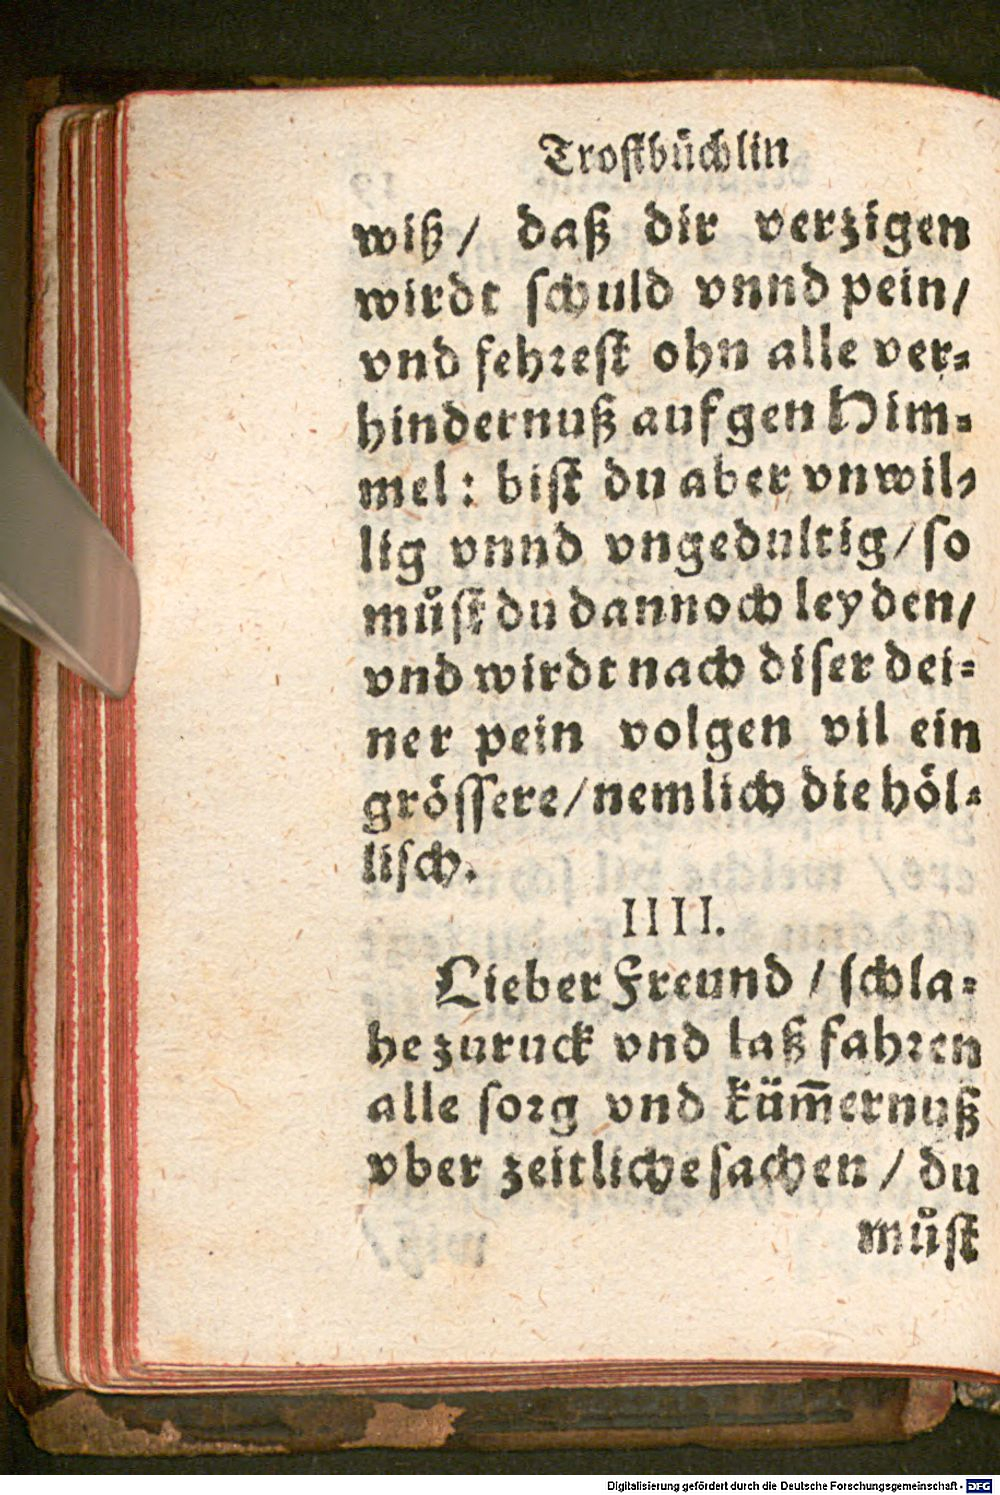 Trostbüchlin
wiß / daß dir verzigen
wirdt schuld vnnd pein /
vnd fehrest ohn alle ver-
hindernuß auf gen Him-
mel : bist du aber vnwil-
lig vnnd vngedultig / so
můst du dannoch leyden /
vnd wirdt nach diser dei-
ner pein volgen vil ein
grössere / nemlich die höl-
lisch.
IIII.
Lieber Freund / schla-
he zuruck vnd laß fahren
alle sorg vnd küm̄ernuß
vber zeitliche sachen / du
můst
Digitalisierung gefördert durch die Deutsche Forschungsgemeinschaft - DFG